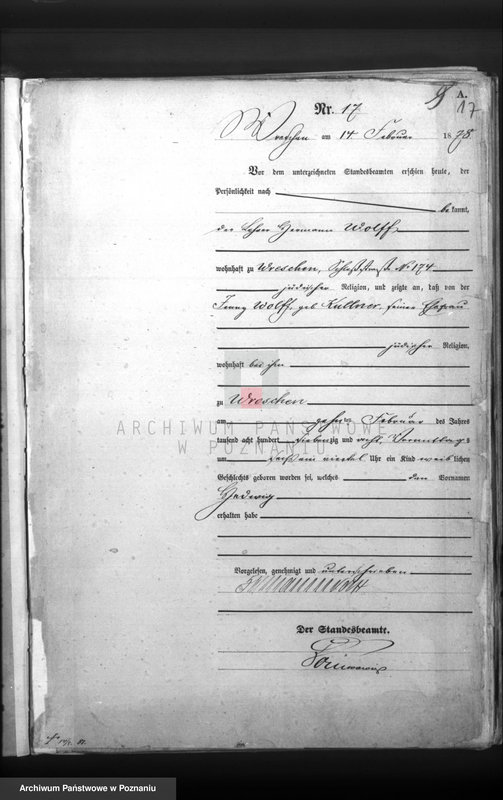 A.
Nr. 17
17
Wreschen am 14 Februar 1878
Vor dem unterzeichneten Standesbeamten erschien heute, der
Persönlichkeit nach
bekannt,
der Lehrer Hermann Wolff,
wohnhaft zu Wreschen, Schloßstraße No 174
jüdischer Religion, und zeigte an, daß von der
Jenny Wolff, geb. Kuttner, seiner Ehefrau
jüdischer Religion,
wohnhaft bei ihm
zu Wreschen
am Februar des Jahres
tausend acht hundert siebenzig und acht, Vormittags
um sechs ein viertel Uhr ein Kind weiblichen
Geschlechts geboren worden sei, welches den Vornamen
Hedwig
erhalten habe
Vorgelesen, genehmigt und unterschrieben
Hermann Wolff
Der Standesbeamte.
ARCHIWUM PAŃSTWOWE
W POZNANIU
Archiwum Państwowe w Poznaniu